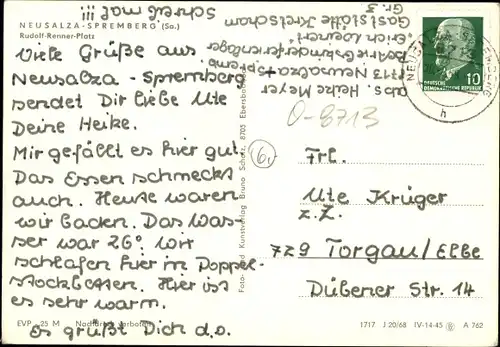 schreib mal !!!
NEUSALZA-SPREMBERG (Sa.)
Rudolf-Renner-Platz
Viele Grüße aus
Neusalza-Spremberg
sendet Dir liebe Ute
Deine Heike.
Mir gefällt es hier gut.
Das Essen schmeckt
auch. Heute waren
wir baden. Das Was-
ser war 26° wir
schlafen hier in Doppel-
stockbetten. Hier ist
es sehr warm.
Es grüßt Dich d.o.
EVP -,25 M Nachdruck verboten
Foto- und Kunstverlag Bruno Scholz, 8705 Ebersbach
abs. Heike Meyer
8713 Neusalza-Spremb.
Betriebskinderferienlager
"Erich Weinert"
Gaststätte Kretscham
Gr. 3
O-8713
6,-
10
DEUTSCHE
DEMOKRATISCHE REPUBLIK
NEUSALZA-SPREMBERG
h
Frl.
Ute Krüger
z.Z.
729 Torgau/Elbe
Dübener Str. 14
1717 J 20/68 IV-14-45 A 762